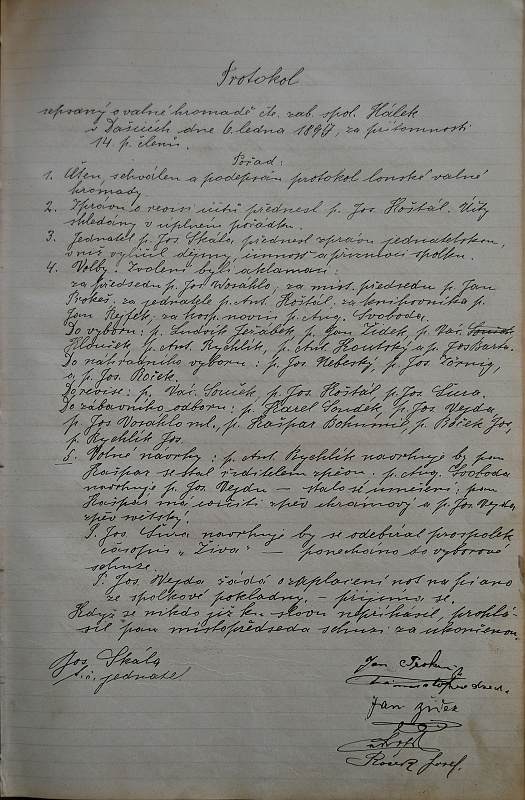 Protokol
sepsaný o valné hromadě čte. zab. spol. Hálek
v Dašicích dne 6. ledna 1897, za přítomnosti
14. p. členů.
Pořad:
1. Čten, schválen a podepsán protokol lonské valné
hromady
2. Zprávu o revisi účtů přednesl p. Jos. Hoštál. Účty
shledány v úplném pořádku.
3. Jednatel p. Jos. Skála, přednesl zprávu jednatelskou,
v níž vylíčil dějiny, činnost a působení spolku.
4. Volby. Zvoleni byli aklamací:
za předsedu p. Jos Vosahlo, za míst. předsedu p. Jan
Prokeš; za jednatele p. Ant. Hoštál, za knihovníka p.
Jan Rejfek; za hosp. novin p. Aug. Svoboda.
Do výboru: p. Ludvík Jeřábek, p. Jan Žídek, p. Vác. Souček
p. Ant. Rychlík, p. Ant. Koutský a p. Jos Barta.
Do náhradního výboru: p. Jos Nebeský, p. Jos Černíg,
a p. Jos. Roček.
Do revise: p. Vác. Souček, p. Jos. Hoštál, p. Jos. Sura.
Do zábavního odboru: p. Karel Soudek, p. Jos. Vejda,
p. Jos Vosahlo ml., p. Kašpar Bohumil, p. Roček Jos,
p. Rychlík Jos.
5. Volné návrhy: p. Ant. Rychlík navrhuje by pan
Kašpar se stal ředitelem zpěvu. p. Aug. Svoboda
navrhuje p. Jos. Vejdu — stalo se usnešení: pan
Kašpar má učiti zpěv chrámový a p. Jos Vejda
zpěv světský.
P. Jos. Sura navrhuje by se odebíral pro spolek
časopis „Živa" — ponecháno do výborové
schůze.
P. Jos. Vejda žádá o zaplacení not na piano
ze spolkové pokladny, — přijímá se.
Když se nikdo již ku slovu nepřihlásil, prohlá-
sil pan místopředseda schůzi za ukončenou.
Jos. Skála
t. č. jednatel
Jan Prokeš
místopředseda
Jan Žídek
Roček Josef.